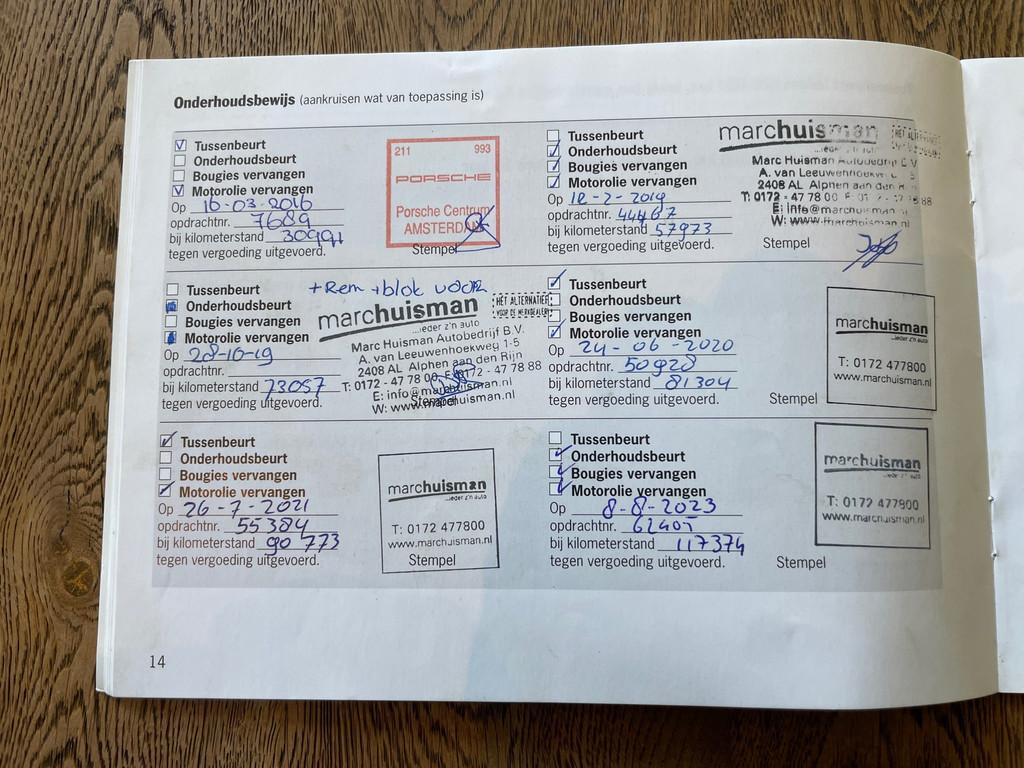 Onderhoudsbewijs (aankruisen wat van toepassing is)
Tussenbeurt
Onderhoudsbeurt
Bougies vervangen
Motorolie vervangen
Op 16-03-2016
opdrachtnr. 7689
bij kilometerstand 30991
tegen vergoeding uitgevoerd.
211 993
PORSCHE
Porsche Centrum
AMSTERDAM
Stempel
Tussenbeurt
Onderhoudsbeurt
Bougies vervangen
Motorolie vervangen
Op 12-2-2019
opdrachtnr. 44467
bij kilometerstand 57973
tegen vergoeding uitgevoerd.
marchuisman
...ieder z'n auto
Marc Huisman Autobedrijf B.V.
A. van Leeuwenhoekweg 1-5
2408 AL Alphen aan den Rijn
T: 0172 - 47 78 00 F: 0172 - 47 78 88
E: info@marchuisman.nl
W: www.marchuisman.nl
Stempel
Tussenbeurt
Onderhoudsbeurt
Bougies vervangen
Motorolie vervangen
Op 28-10-19
opdrachtnr.
bij kilometerstand 73057
tegen vergoeding uitgevoerd.
+Rem +blok voor
marchuisman
...ieder z'n auto
HET ALTERNATIEF
VOOR DE MERKDEALER
Marc Huisman Autobedrijf B.V.
A. van Leeuwenhoekweg 1-5
2408 AL Alphen aan den Rijn
T: 0172 - 47 78 00 F: 0172 - 47 78 88
E: info@marchuisman.nl
W: www.marchuisman.nl
Stempel
Tussenbeurt
Onderhoudsbeurt
Bougies vervangen
Motorolie vervangen
Op 24-06-2020
opdrachtnr. 50928
bij kilometerstand 81304
tegen vergoeding uitgevoerd.
Stempel
marchuisman
...ieder z'n auto
T: 0172 477800
www.marchuisman.nl
Tussenbeurt
Onderhoudsbeurt
Bougies vervangen
Motorolie vervangen
Op 26-7-2021
opdrachtnr. 55384
bij kilometerstand 90 773
tegen vergoeding uitgevoerd.
marchuisman
...ieder z'n auto
T: 0172 477800
www.marchuisman.nl
Stempel
Tussenbeurt
Onderhoudsbeurt
Bougies vervangen
Motorolie vervangen
Op 8-8-2023
opdrachtnr. 62407
bij kilometerstand 117374
tegen vergoeding uitgevoerd.
Stempel
marchuisman
...ieder z'n auto
T: 0172 477800
www.marchuisman.nl
14